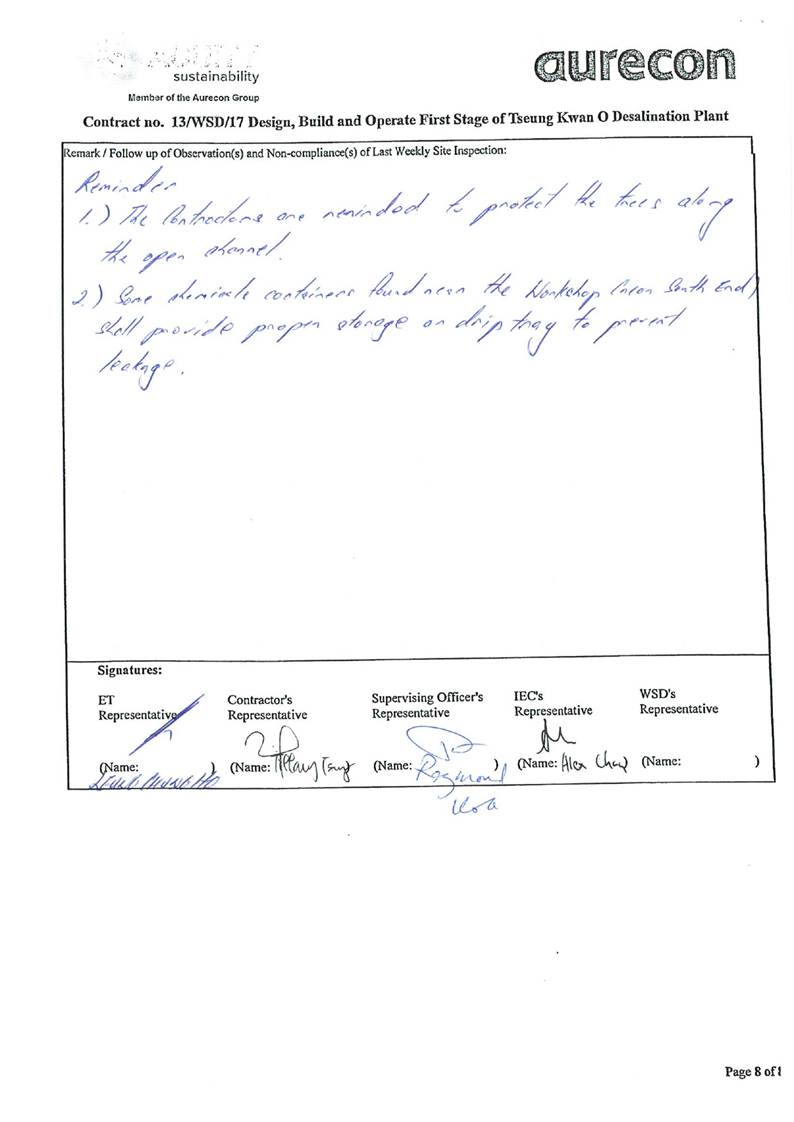 sustainability
Member of the Aurecon Group
aurecon
Contract no. 13/WSD/17 Design, Build and Operate First Stage of Tseung Kwan O Desalination Plant
Remark / Follow up of Observation(s) and Non-compliance(s) of Last Weekly Site Inspection:
Reminder
1.) The Contractors are reminded to protect the trees along
the open channel.
2.) Some chemicals containers found near the Workshop (near South End)
shall provide proper storage or drip tray to prevent
leakage.
Signatures:
ET
Representative
Contractor's
Representative
Supervising Officer's
Representative
IEC's
Representative
WSD's
Representative
(Name: )
(Name:
(Name: Raymond )
(Name: Alex Chan )
(Name: )
Page 8 of